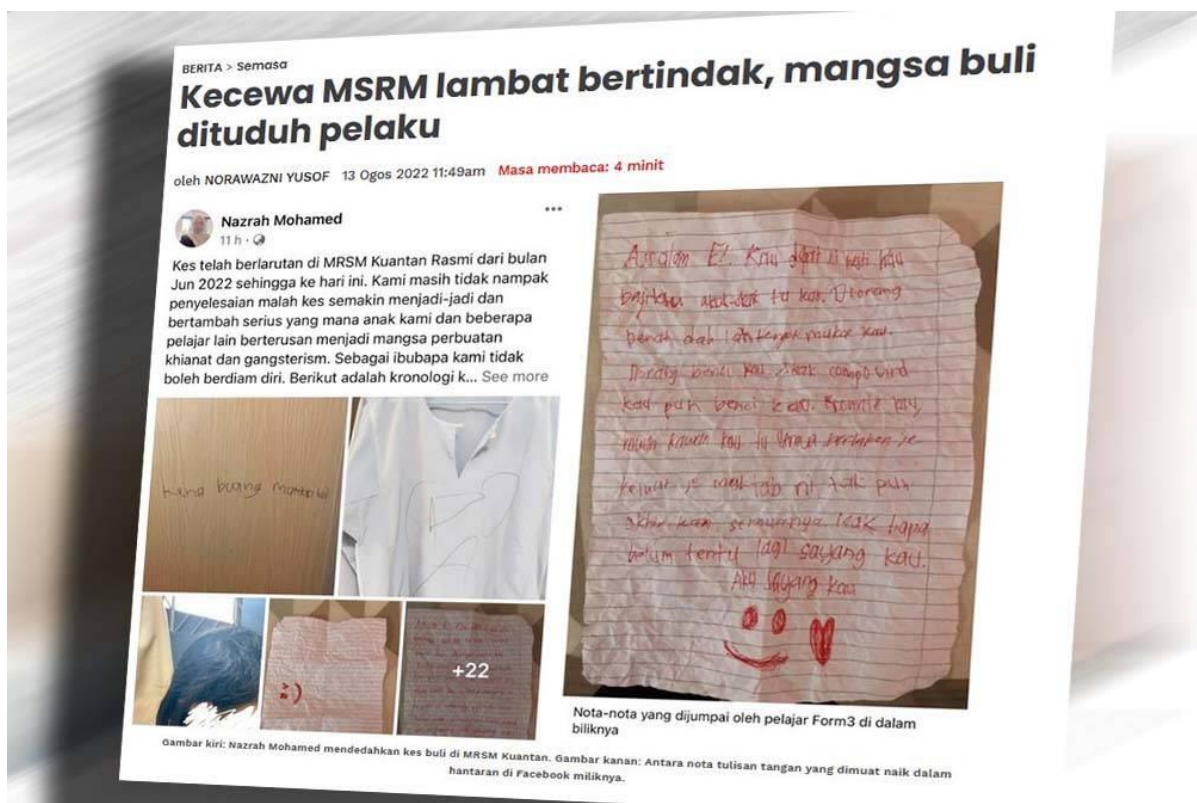 BERITA > Semasa
Kecewa MSRM lambat bertindak, mangsa buli
dituduh pelaku
oleh NORAWAZNI YUSOF 13 Ogos 2022 11:49am Masa membaca: 4 minit
Nazrah Mohamed
11 h
Kes telah berlarutan di MRSM Kuantan Rasmi dari bulan
Jun 2022 sehingga ke hari ini. Kami masih tidak nampak
penyelesaian malah kes semakin menjadi-jadi dan
bertambah serius yang mana anak kami dan beberapa
pelajar lain berterusan menjadi mangsa perbuatan
khianat dan gangsterism. Sebagai ibubapa kami tidak
boleh berdiam diri. Berikut adalah kronologi k... See more
buang
+22
Assalam E!. Kau dapat ni mesti kau
tu kan.
benah dah lah tengok muka kau.
benci kau budak compound
kau pun benci kau.
kawan kau tu
keluar je maktab ni tak pun
akhir kan semuanya
belum tentu lagi sayang kau.
Aku sayang kau
Nota-nota yang dijumpai oleh pelajar Form3 di dalam
biliknya
Gambar kiri: Nazrah Mohamed mendedahkan kes buli di MRSM Kuantan. Gambar kanan: Antara nota tulisan tangan yang dimuat naik dalam
hantaran di Facebook miliknya.